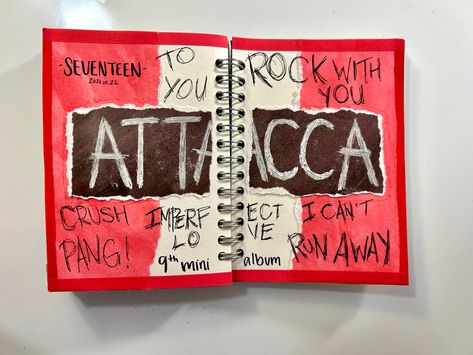 -SEVENTEEN-
2021.10.22
TO
YOU
ROCK WITH
YOU
ATTACCA
CRUSH
PANG!
IMPERFECT
LOVE
I CAN'T
RUN AWAY
9th mini album